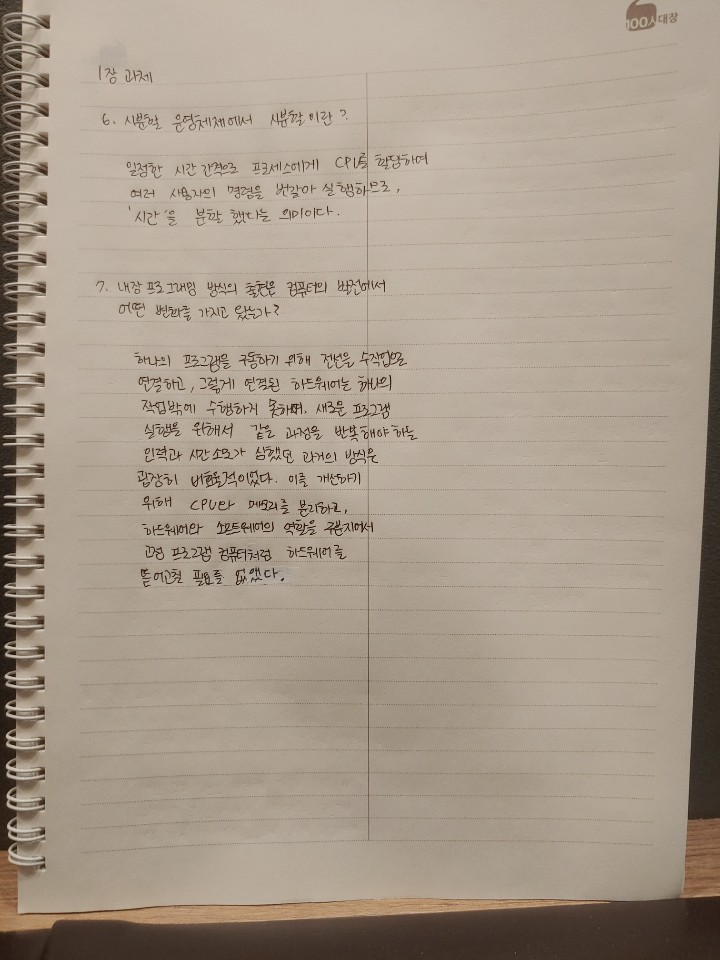 100人대장
1장 과제
6. 시분할 운영체제에서 시분할이란?
일정한 시간 간격으로 프로세스에게 CPU를 할당하여
여러 사용자의 명령을 번갈아 실행하므로,
'시간'을 분할 했다는 의미이다.
7. 내장 프로그래밍 방식의 출현은 컴퓨터의 발전에서
어떤 변화를 가지고 왔는가?
하나의 프로그램을 구동하기 위해 전선을 수작업으로
연결하고, 그렇게 연결된 하드웨어는 하나의
작업밖에 수행하지 못하며, 새로운 프로그램
실행을 위해서 같은 과정을 반복해야 하는
인력과 시간 소모가 심했던 과거의 방식은
굉장히 비효율적이었다. 이를 개선하기
위해 CPU와 메모리를 분리하고,
하드웨어와 소프트웨어의 역할을 구분지어서
고정 프로그램 컴퓨터처럼 하드웨어를
뜯어고칠 필요를 없앴다.